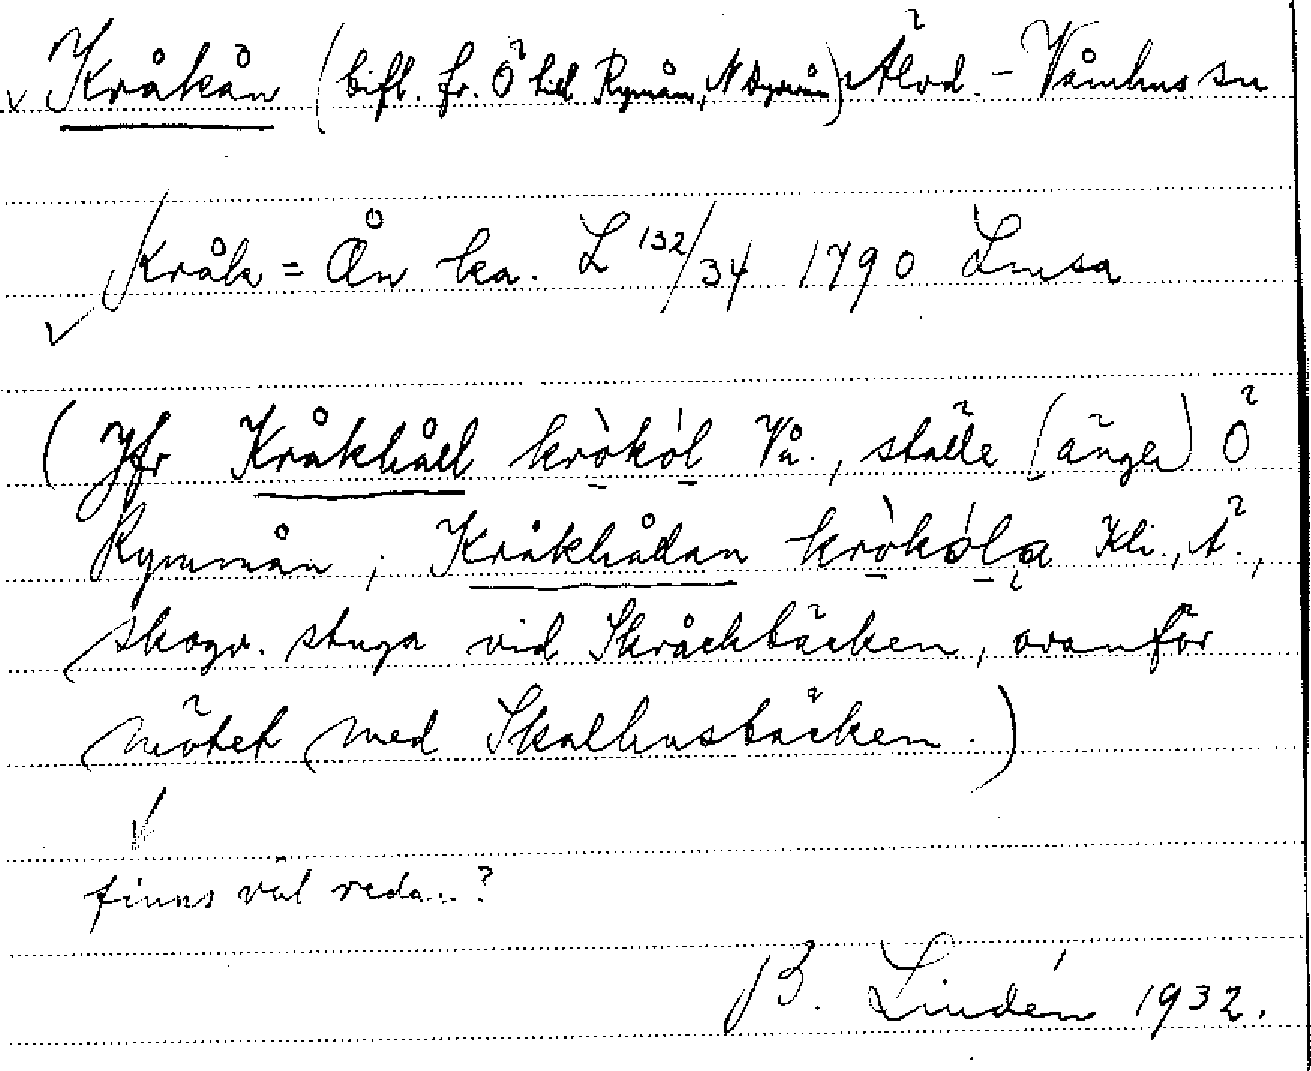 Kråkån (bifl. fr. Ö till Rymån, N Dyverån) Älvd. - Våmhus sn
Kråk = Ån ka. L 132/34 1790 Lmsa
(Jfr Kråkhåll kròkól Vå., ställe (ängar) Ö
Rymmån; Kråkhållan kròkóla Kli., Ä.,
skogv. stuga vid Skråckbäcken, ovanför
mötet med Skalhusbäcken.)
finns väl redan?
B. Lindén 1932.